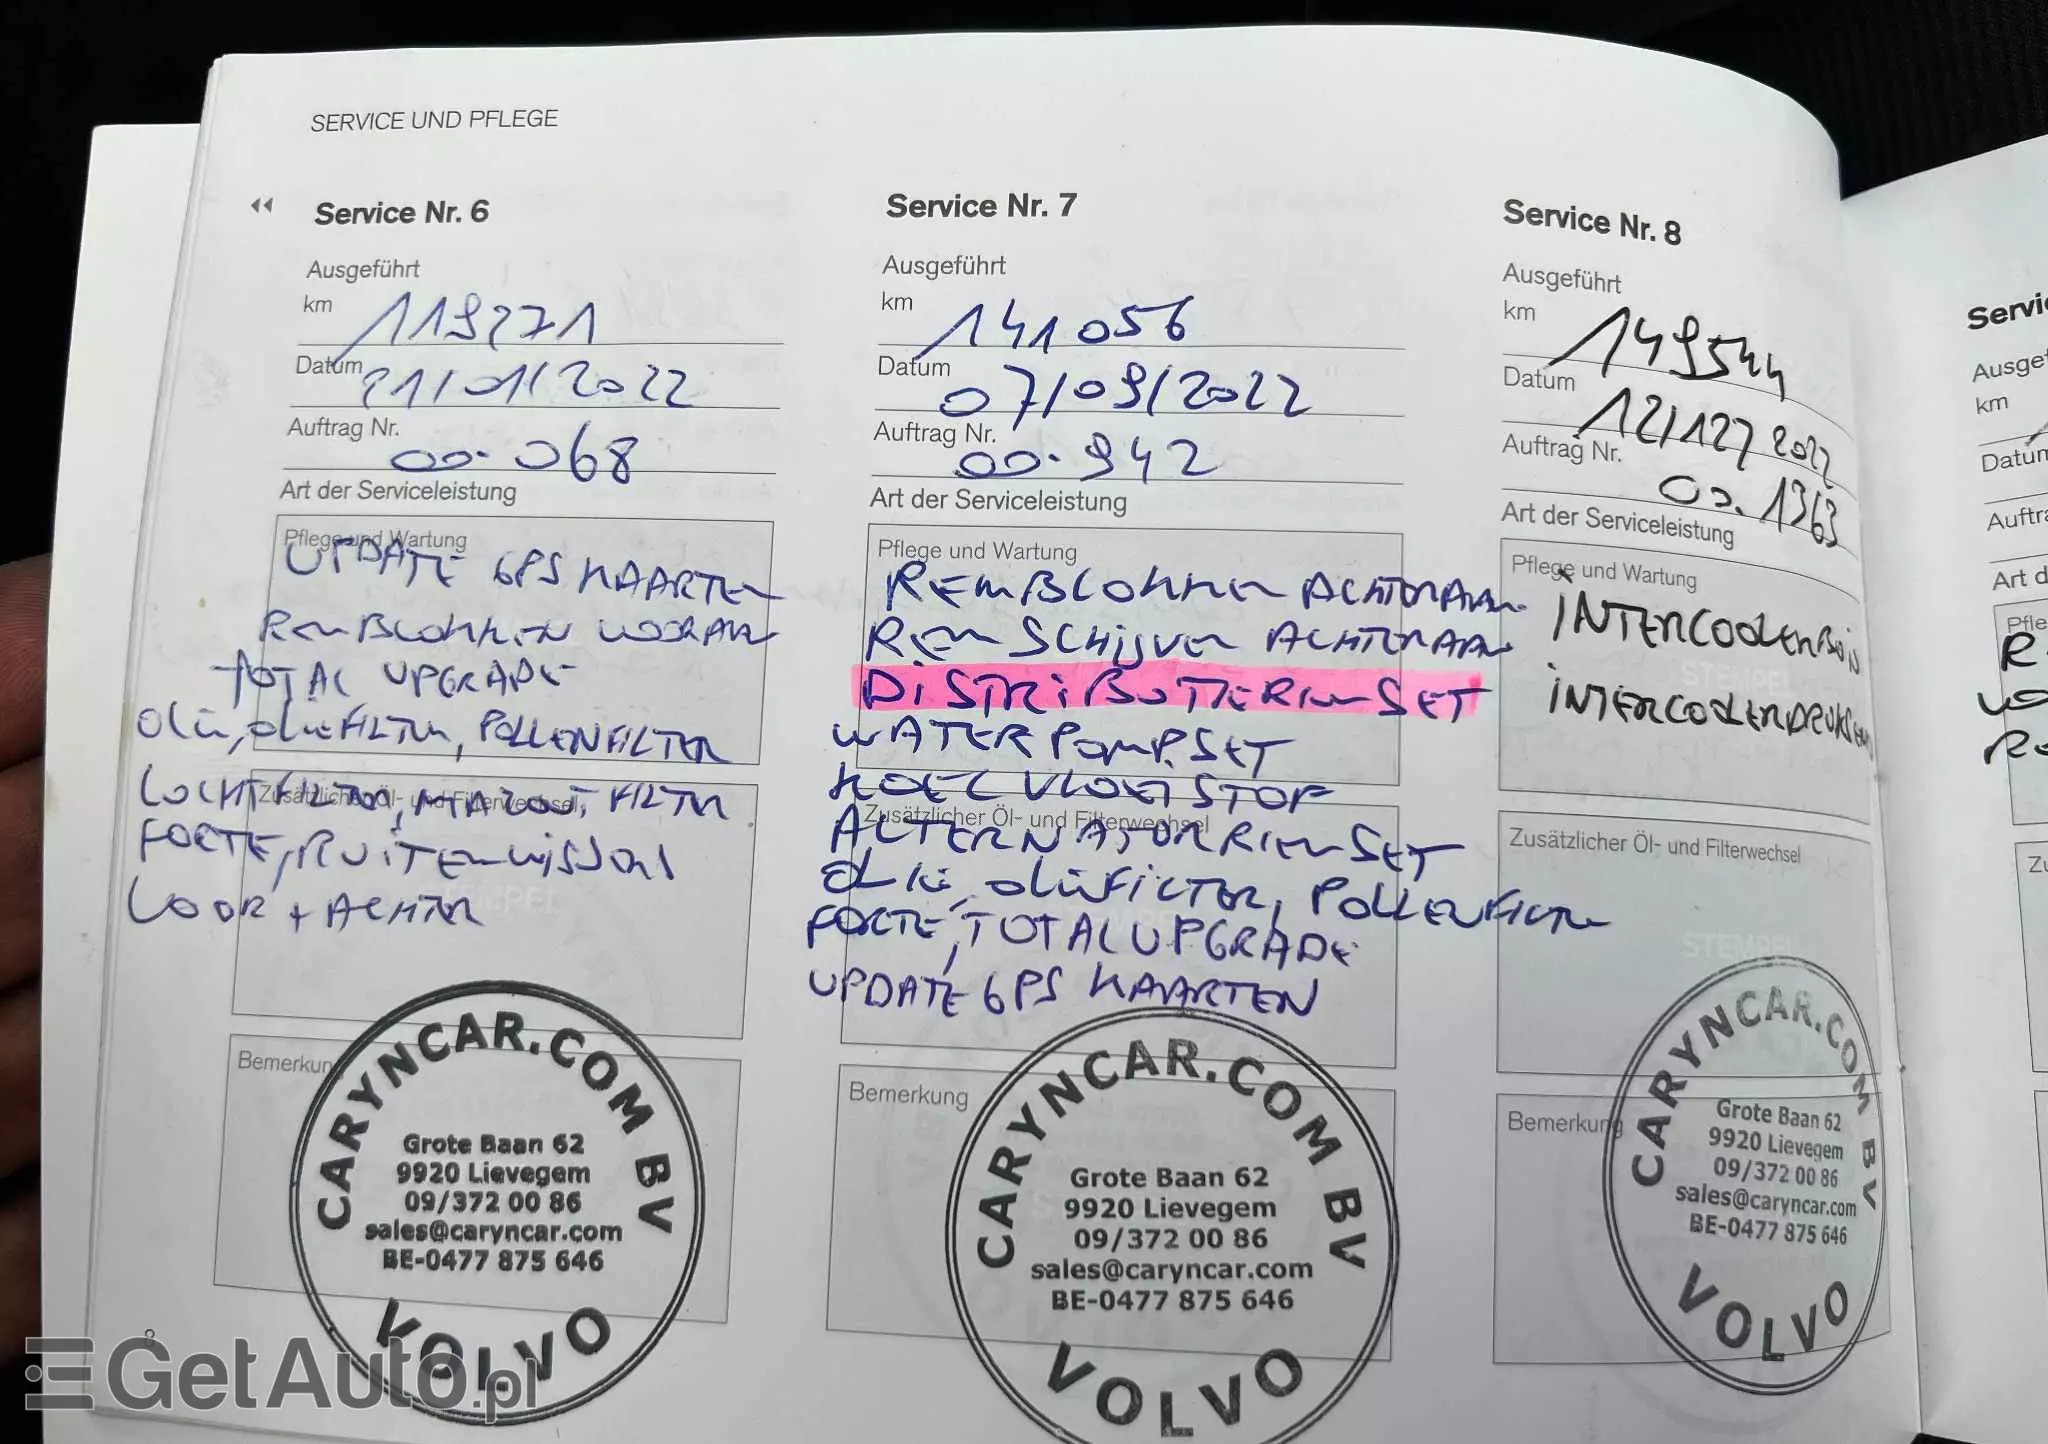 SERVICE UND PFLEGE
Service Nr. 6
Ausgeführt
km 119271
Datum 21/01/2022
Auftrag Nr. 00.068
Art der Serviceleistung
Pflege und Wartung
UPDATE GPS KAARTEN
REMBLOKKEN VOORAAN
TOTAL UPGRADE
OLIE, OLIEFILTER, POLLENFILTER
Zusätzlicher Öl- und Filterwechsel
LUCHTFILTER, MAZOUTFILTER
FORTE, RUITENWISSERS
VOOR + ACHTER
STEMPEL
Bemerkung
CARYNCAR.COM BV
Grote Baan 62
9920 Lievegem
09/372 00 86
sales@caryncar.com
BE-0477 875 646
VOLVO
Service Nr. 7
Ausgeführt
km 141056
Datum 07/09/2022
Auftrag Nr. 00.942
Art der Serviceleistung
Pflege und Wartung
REMBLOKKEN ACHTERAAN
REMSCHIJVEN ACHTERAAN
DISTRIBUTIERIEMSET
WATERPOMPSET
KOELVLOEISTOF
Zusätzlicher Öl- und Filterwechsel
ALTERNATORRIEMSET
OLIE, OLIEFILTER, POLLENFILTER
FORTE, TOTAL UPGRADE
UPDATE GPS KAARTEN
Bemerkung
CARYNCAR.COM BV
Grote Baan 62
9920 Lievegem
09/372 00 86
sales@caryncar.com
BE-0477 875 646
VOLVO
Service Nr. 8
Ausgeführt
km 149544
Datum 12/12/2022
Auftrag Nr. 00.1363
Art der Serviceleistung
Pflege und Wartung
INTERCOOLERBUIS
STEMPEL
Zusätzlicher Öl- und Filterwechsel
STEMPEL
Bemerkung
CARYNCAR.COM BV
Grote Baan 62
9920 Lievegem
09/372 00 86
sales@caryncar.com
BE-0477 875 646
VOLVO
Servi
Ausge
km
Datum
Auftra
Art d
Pfle
Zu
GetAuto.pl